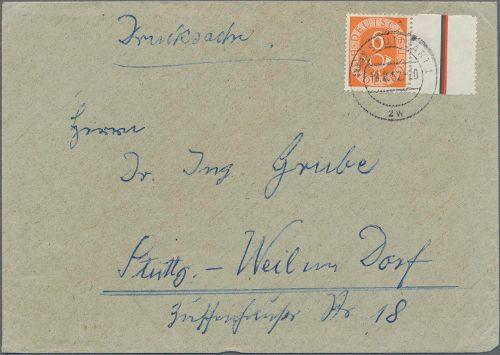 Drucksache
DEUTSCHE
6
STUTTGART 1
.52.-20
zw
Herrn
Dr. Ing Grube
Stuttg. - Weil im Dorf
Zuffenhauser Str 18